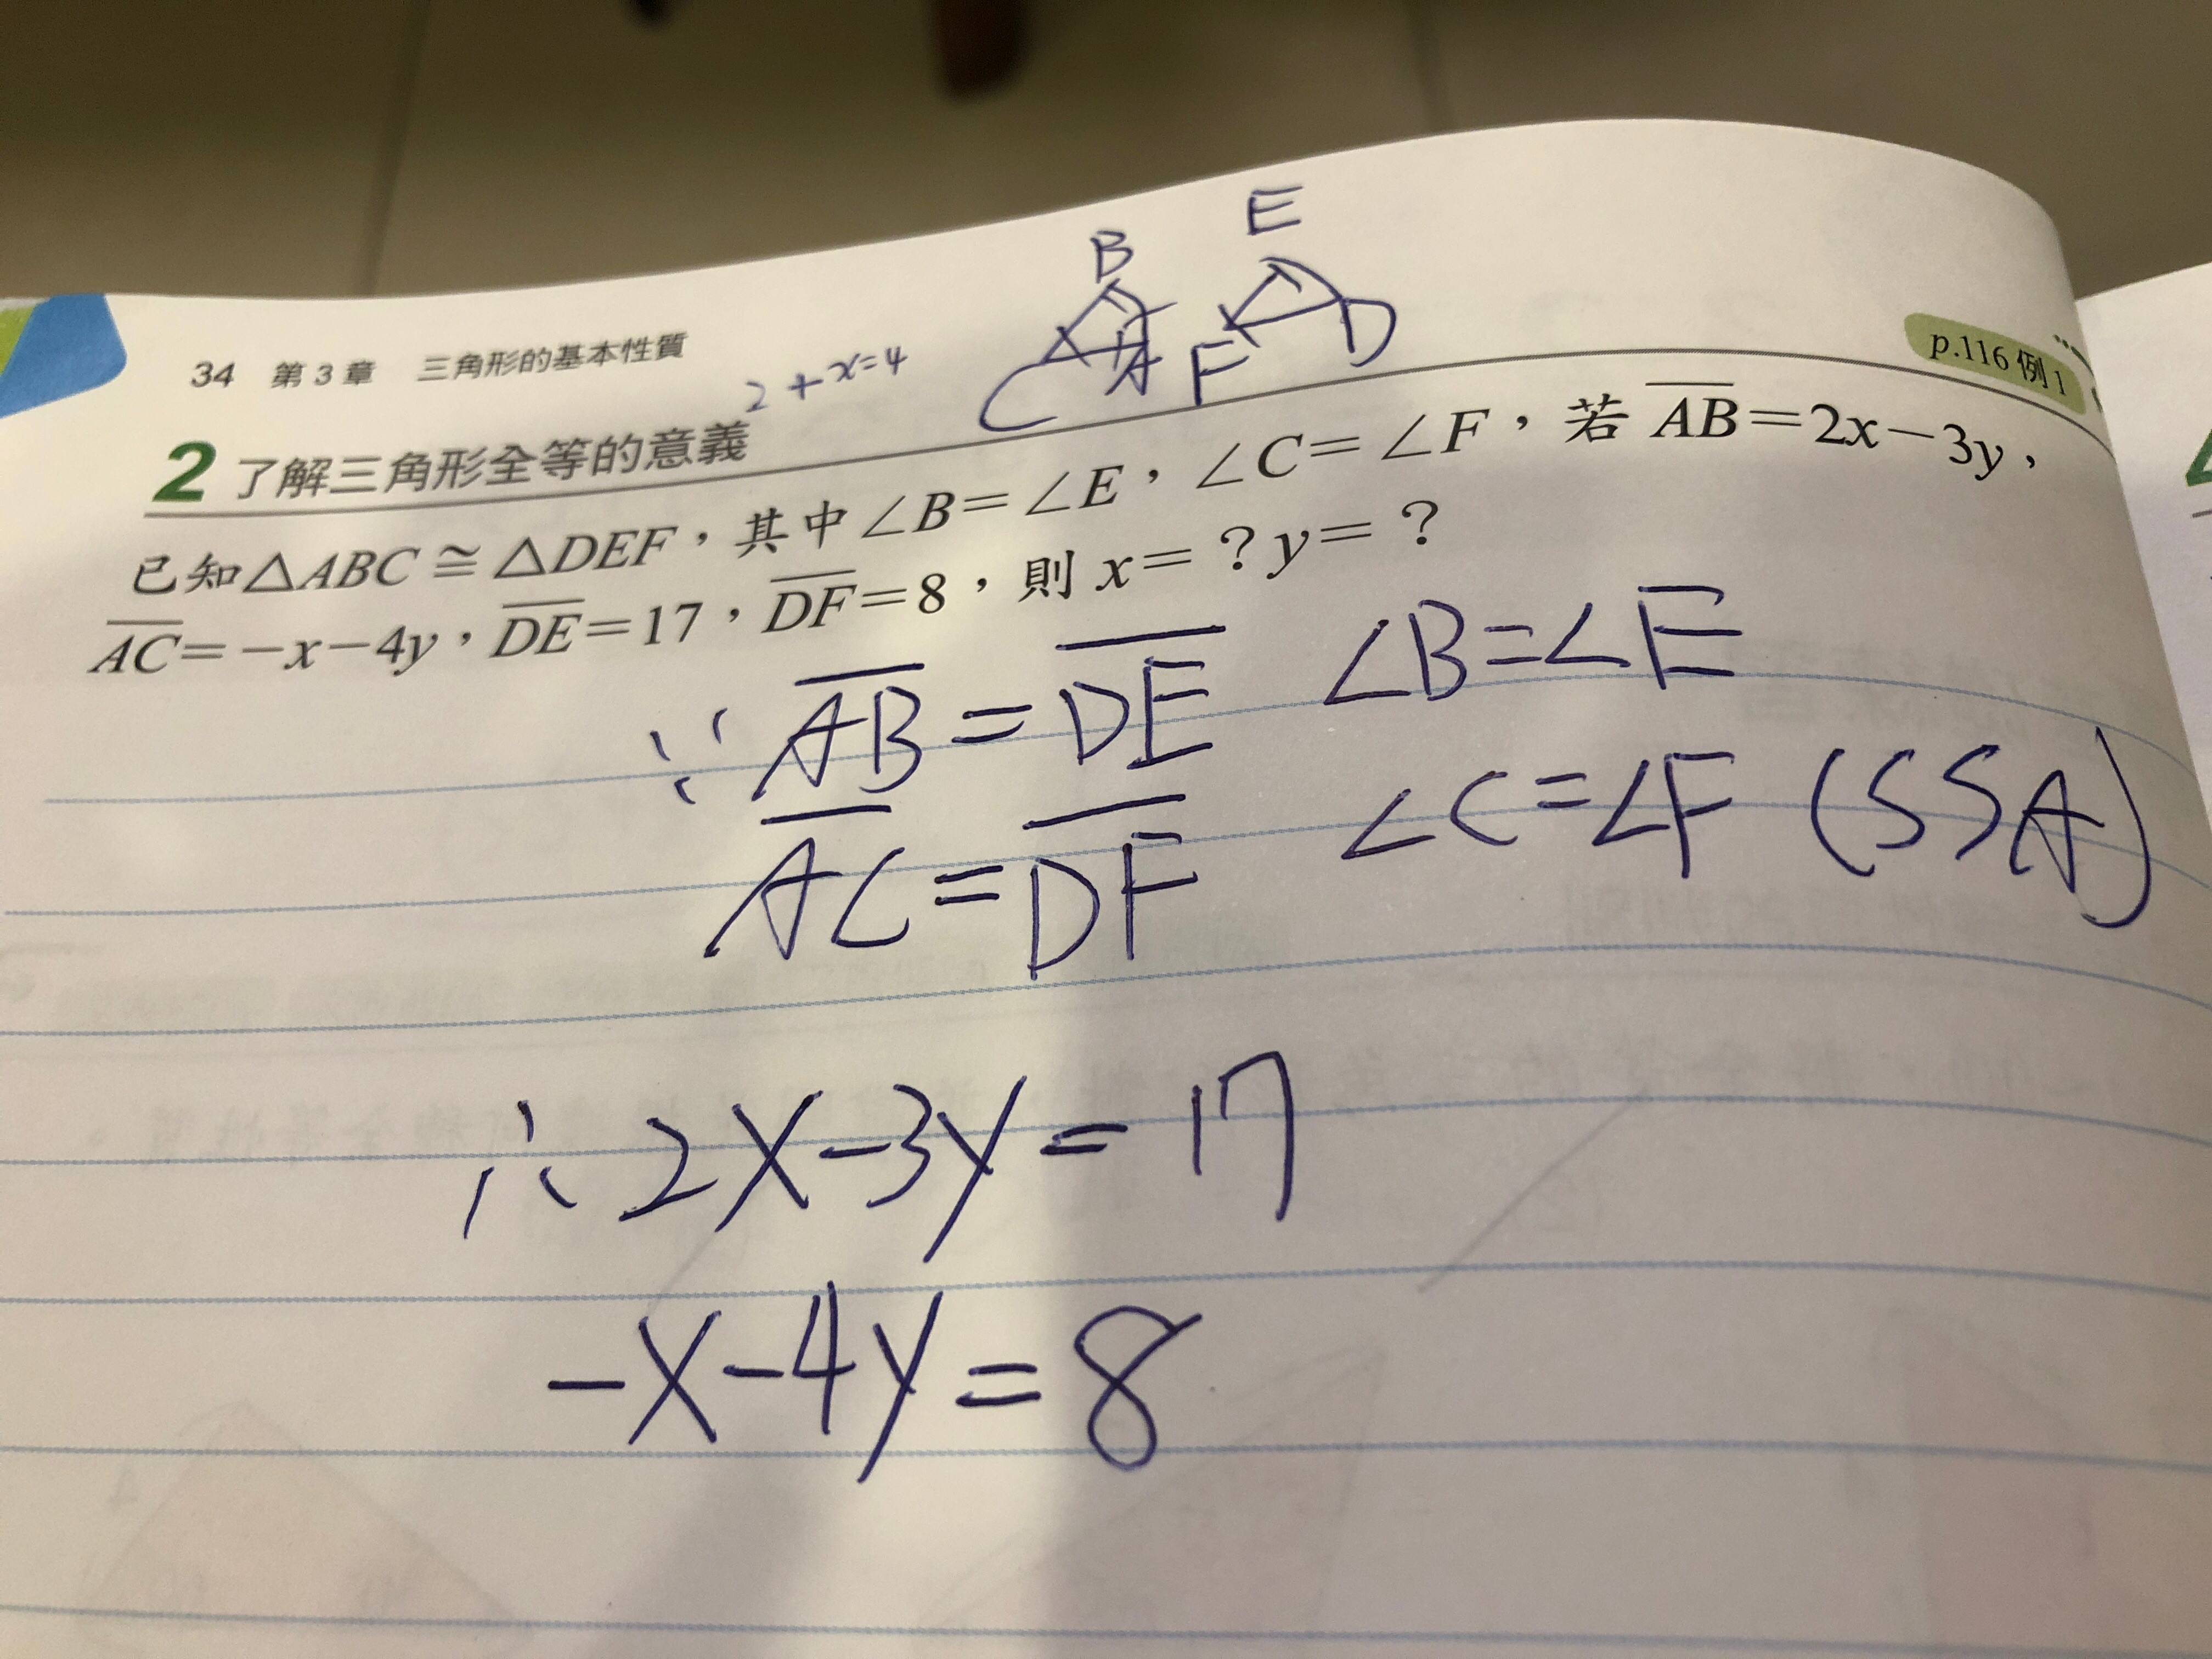 34 第3章 三角形的基本性質
2+x=4
B
C
A
E
F
D
p.116 例1
2 了解三角形全等的意義
已知△ABC≅△DEF，其中∠B=∠E，∠C=∠F，若 A̅B̅=2x−3y，
A̅C̅=−x−4y，D̅E̅=17，D̅F̅=8，則 x=？y=？
∵ A̅B̅=D̅E̅ ∠B=∠E
A̅C̅=D̅F̅ ∠C=∠F (SSA)
∴ 2x−3y=17
−x−4y=8